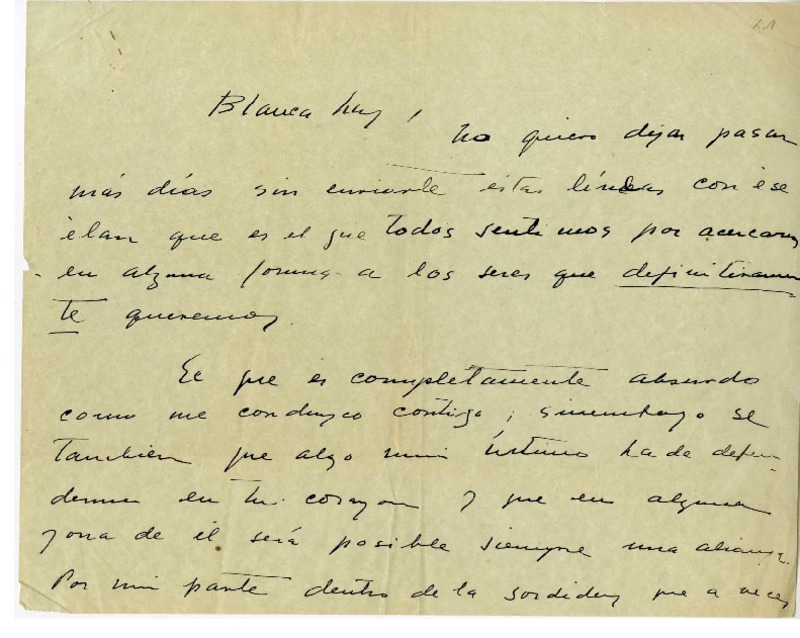 Blanca Luz,
no quiero dejar pasar
más días sin enviarle estas líneas con ese
élan que es el que todos sentimos por acercarnos
en alguna forma a los seres que definitivamen
te queremos.
Sé que es completamente absurdo
como me conduzco contigo; sinembargo se
tambien que algo muy íntimo ha de defen-
derme en tu corazon y que en alguna
zona de él será posible siempre una alianza.
Por mi parte dentro de la sordidez que a veces